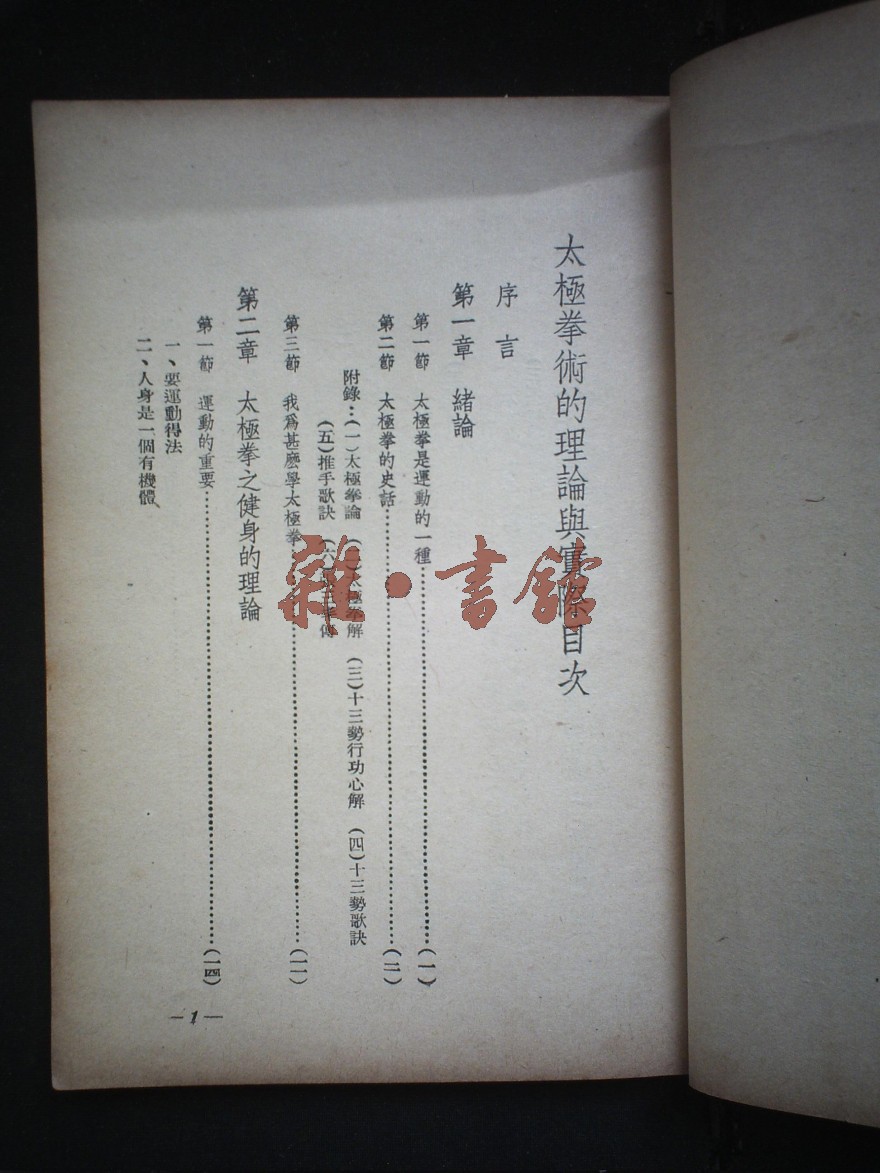 太極拳術的理論與實際目次
序言
第一章 緒論
第一節 太極拳是運動的一種………(一)
第二節 太極拳的史話………(二)
附錄：(一)太極拳論 (二)太極拳解 (三)十三勢行功心解 (四)十三勢歌訣
(五)推手歌訣 (六
第三節 我爲甚麽學太極拳………(一一)
第二章 太極拳之健身的理論
第一節 運動的重要………(一四)
一、要運動得法
二、人身是一個有機體
—1—
雜·書館